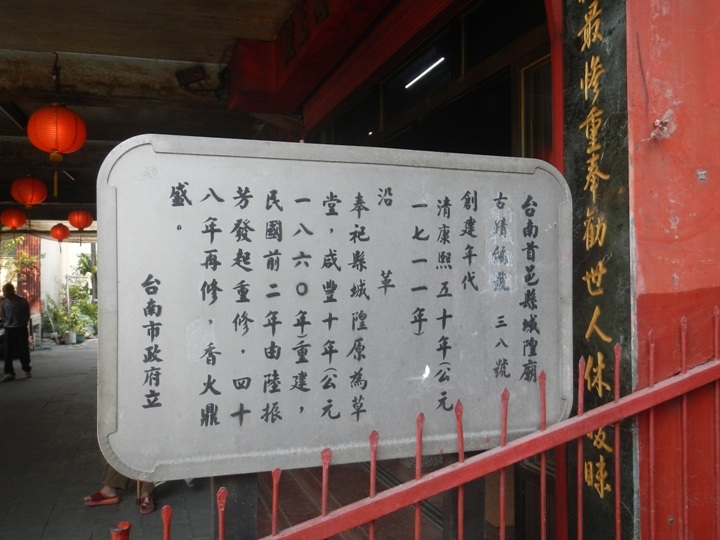 最慘重奉勸世人休曖昧
台南首邑縣城隍廟
古蹟編號 三八號
創建年代
清康熙五十年(公元
一七一一年)
沿 革
奉祀縣城隍原為草
堂，咸豐十年(公元
一八六〇年)重建，
民國前二年由陸振
芳發起重修．四十
八年再修．香火鼎
盛。
台南市政府立